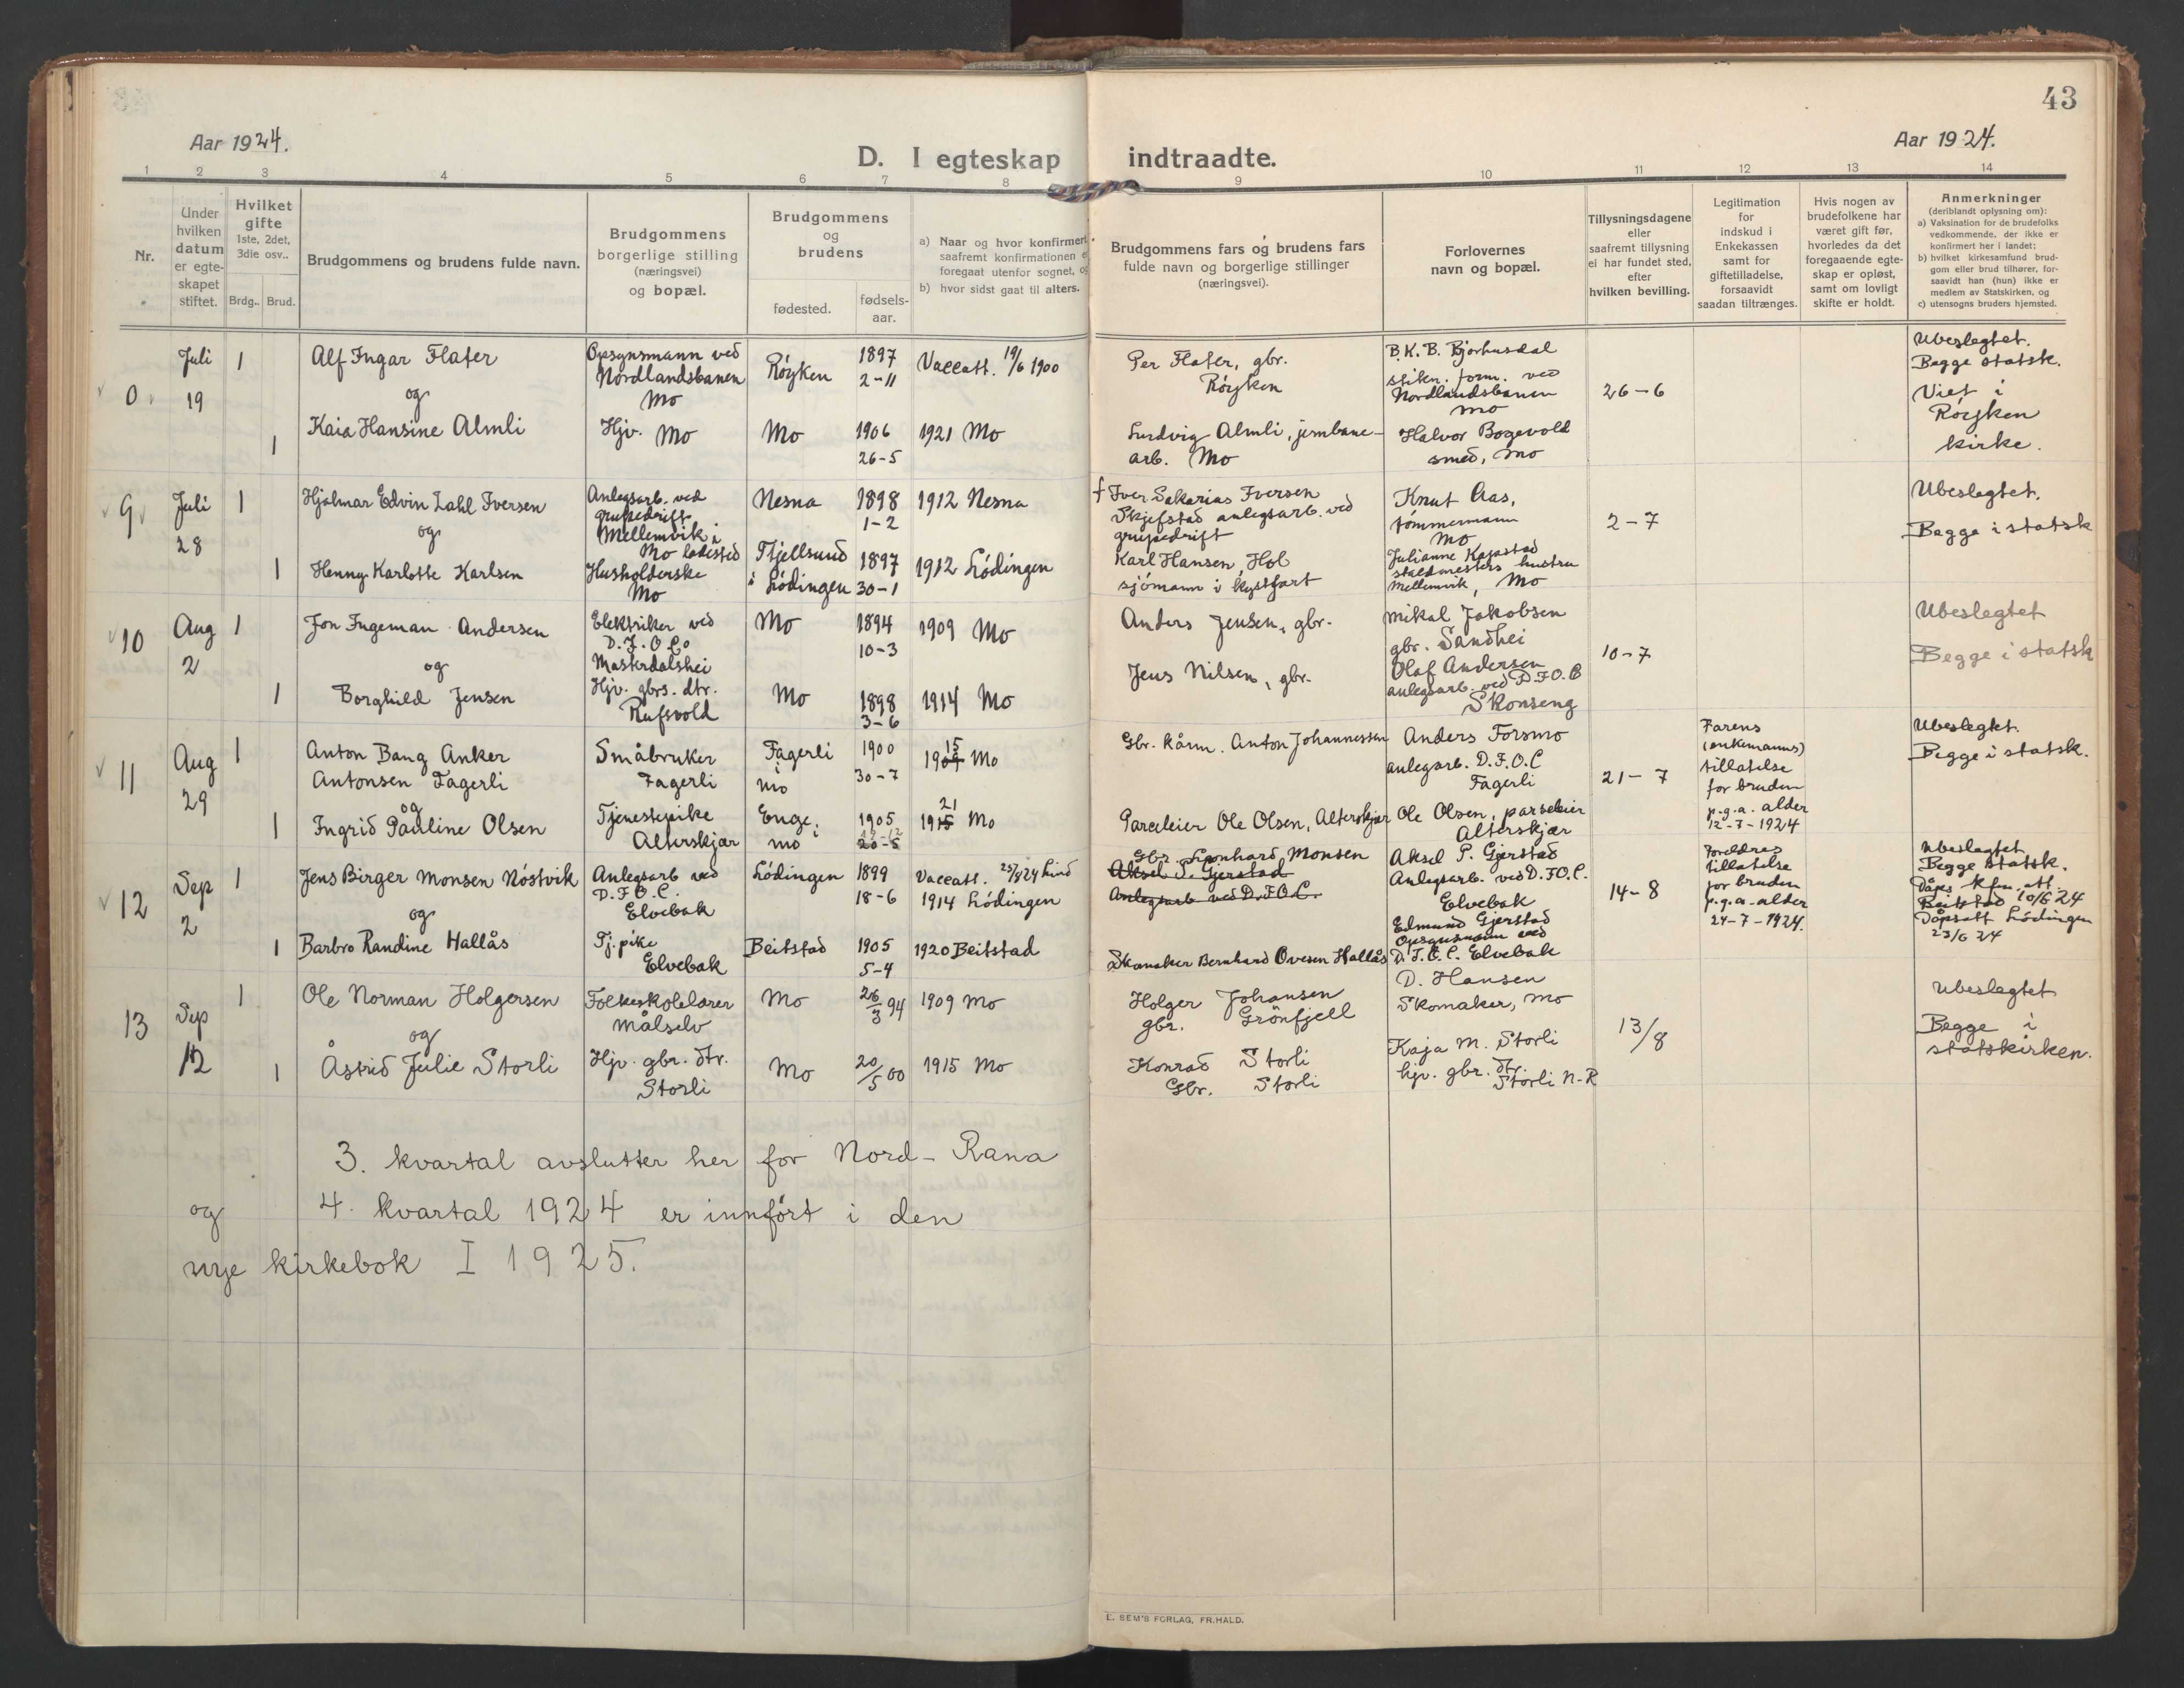 43
Aar 1924.
Aar 1924.
D. I egteskap indtraadte.
1 2 3 4 5 6 7 8 9 10 11 12 13 14
Nr.
Under
hvilken
datum
er egte-
skapet
stiftet.
Hvilket
gifte
1ste, 2det,
3die osv..
Brdg.. Brud.
Brudgommens og brudens fulde navn.
Brudgommens
borgerlige stilling
(næringsvei)
og bopæl.
Brudgommens
og
brudens
fødested.
fødsels-
aar.
a) Naar og hvor konfirmert
saafremt konfirmationen
foregaat utenfor sognet,
b) hvor sidst gaat til alters.
Brudgommens fars og brudens fars
fulde navn og borgerlige stillinger
(næringsvei).
Forlovernes
navn og bopæl.
Tillysningsdagene
eller
saafremt tillysning
ei har fundet sted,
efter
hvilken bevilling.
Legitimation
for
indskud i
Enkekassen
samt for
giftetilladelse,
forsaavidt
saadan tiltrænges.
Hvis nogen av
brudefolkene har
været gift før,
hvorledes da det
foregaaende egte-
skap er opløst,
samt om lovligt
skifte er holdt.
Anmerkninger
(deriblandt oplysning om):
a) Vaksination for de brudefolks
vedkommende, der ikke er
konfirmert her i landet;
b) hvilket kirkesamfund brud-
gom eller brud tilhører, for-
saavidt han (hun) ikke er
medlem av Statskirken, og
c) utensogns bruders hjemsted.
0. Juli
19
1
1
Alf Ingar Flater
og
Kaia Hansine Almli
Opsynsmann ved
Nordlandsbanen
Mo
Hjv. Mo
Røyken
Mo
1897
2-11
1906
26-5
Vaccatt. 19/6 1900
1921 Mo
Per Flater, gbr.
Røyken
Ludvig Almli, jernbane-
arb. Mo
B.K.B. Bjorhusdal
stikn. form. ved
Nordlandsbanen
Mo
Halvor Bogevold
smed, Mo
26-6
Ubeslegtet.
Begge statsk.
Viet i
Røyken
kirke.
9 Juli
28
1
1
Hjalmar Edvin Zahl Iversen
og
Henny Karlotte Karlsen
Anlegsarb. ved
grubedrift
Mellemvik i
Mo ladested
Husholderske
Mo
Nesna
Tjellsund
i Lödingen
1898
1-2
1897
30-1
1912 Nesna
1912 Lödingen
f Iver Sakarias Iversen
Skjefstad anlegsarb. ved
grubedrift
Karl Hansen, Hol
sjömann i kystfart
Knut Aas,
tømmermann
Mo
Julianne Kapstad
staldmesters hustru
Mellemvik, Mo
2-7
Ubeslegtet.
Begge i statsk
10 Aug
2
1
1
Jon Ingeman Andersen
og
Borghild Jensen
Elektriker ved
D.F.O.Co
Masterdalshei
Hjv. gbrs. dtr.
Rufsvold
Mo
Mo
1894
10-3
1898
3-6
1909 Mo
1914 Mo
Anders Jensen, gbr.
Jens Nilsen, gbr.
Mikal Jakobsen
gbr. Sandhei
Olaf Andersen
anlegsarb. ved D.F.O.C
Skonseng
10-7
Ubeslegtet
Begge i statsk
11 Aug
29
1
1
Anton Bang Anker
Antonsen Fagerli
og
Ingrid Pauline Olsen
Småbruker
Fagerli
Tjenestepike
Alterskjær
Fagerli
i
Mo
Enge,
Mo i
1900
30-7
1905
12-12
20-5
15
1909 Mo
21
1915 Mo
Gbr. kårm. Anton Johannessen
Parseleier Ole Olsen, Alterskjær
Anders Forsmo
anlegsarb. D.F.O.C
Fagerli
Ole Olsen, parseleier
Alterskjær
21-7
Farens
(enkemanns)
tillatelse
for bruden
p.g.a. alder
12-7-1924
Ubeslegtet.
Begge i statsk.
12 Sep
2
1
1
Jens Birger Monsen Nöstvik
og
Barbro Randine Hallås
Anlegsarb ved
D.F.O.C.
Elvebak
Tj.pike
Elvebak
Lödingen
Beitstad
1899
18-6
1905
5-4
Vaccatt. 25/8 24
1914 Lödingen
1920 Beitstad
Gbr. Leonhard Monsen
Aksel P. Gjerstad
Anlegsarb ved D.F.O.C.
Skomaker Bernhard Ovesen Hallås
Aksel P. Gjerstad
Anlegsarb. ved D.F.O.C.
Elvebak
Edmund Gjerstad
Opsynsmann ved
D.F.O.C. Elvebak
14-8
Foreldres
tillatelse
for bruden
p.g.a. alder
24-7-1924.
Ubeslegtet.
Begge Statsk.
Dåps- kfm. att.
Beitstad 10/6 24
Dåpsatt Lödingen
23/6 24
13 Sep
12
1
1
Ole Norman Holgersen
og
Åstrid Julie Storli
Folkeskolelærer
Målselv
Hjv. gbr. dtr.
Storli
Mo
Mo
26/3 94
20/5 00
1909 Mo
1915 Mo
Holger Johansen
gbr. Grönfjell
Konrad Storli
Gbr. Storli
D. Hansen
Skomaker, Mo
Kaja M. Storli
hjv. gbr. dtr.
Storli N-R
13/8
Ubeslegtet
Begge i
statskirken.
3. kvartal avslutter her for Nord-Rana
og 4. kvartal 1924 er innført i den
nye kirkebok I 1925.
E. SEM'S FORLAG, FR.HALD.